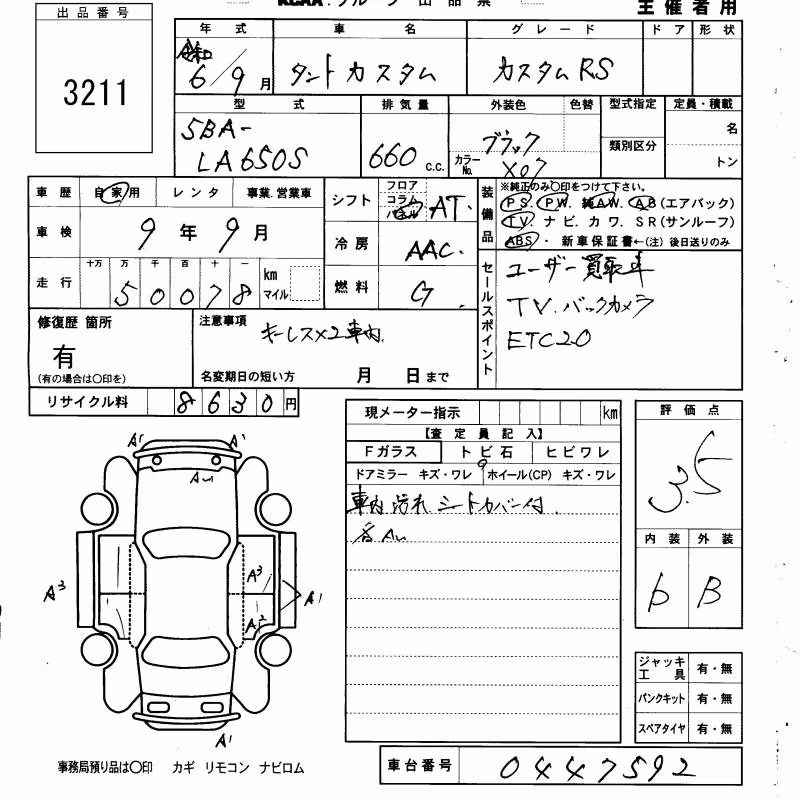 出品番号
3211
主催者用
年式 車名 グレード ドア 形状
令和
6/9月 タントカスタム カスタムRS
型式 排気量 外装色 色替 型式指定 定員・積載
5BA-
LA650S 660 c.c. ブラック
カラーNo. X07
類別区分 名
トン
車歴 自家用 レンタ 事業.営業車
車検 9年9月
走行 十万 万 千 百 十 一
50078 km
マイル
シフト フロア
コラム
パネル AT.
冷房 AAC.
燃料 G.
装備品 ※純正のみ〇印をつけて下さい。
PS. PW. 純AW. AB(エアバック)
TV. ナビ. カワ. SR(サンルーフ)
ABS・ 新車保証書←(注)後日送りのみ
セールスポイント
ユーザー買取車
TV.バックカメラ
ETC2.0
修復歴 箇所
有
(有の場合は〇印を)
注意事項
キーレス×2車内.
名変期日の短い方 月 日まで
リサイクル料 8630円
現メーター指示 km
【査定員記入】
Fガラス トビ石 ヒビワレ
ドアミラー キズ・ワレ ホイール(CP) キズ・ワレ
車内汚れ シートカバー付.
各AU
評価点
3.5
内装 外装
b B
A1 A1
AU
A3
A3
A2
A1
A1
ジャッキ
工具 有・無
パンクキット 有・無
スペアタイヤ 有・無
事務局預り品は〇印 カギ リモコン ナビロム
車台番号 0447592